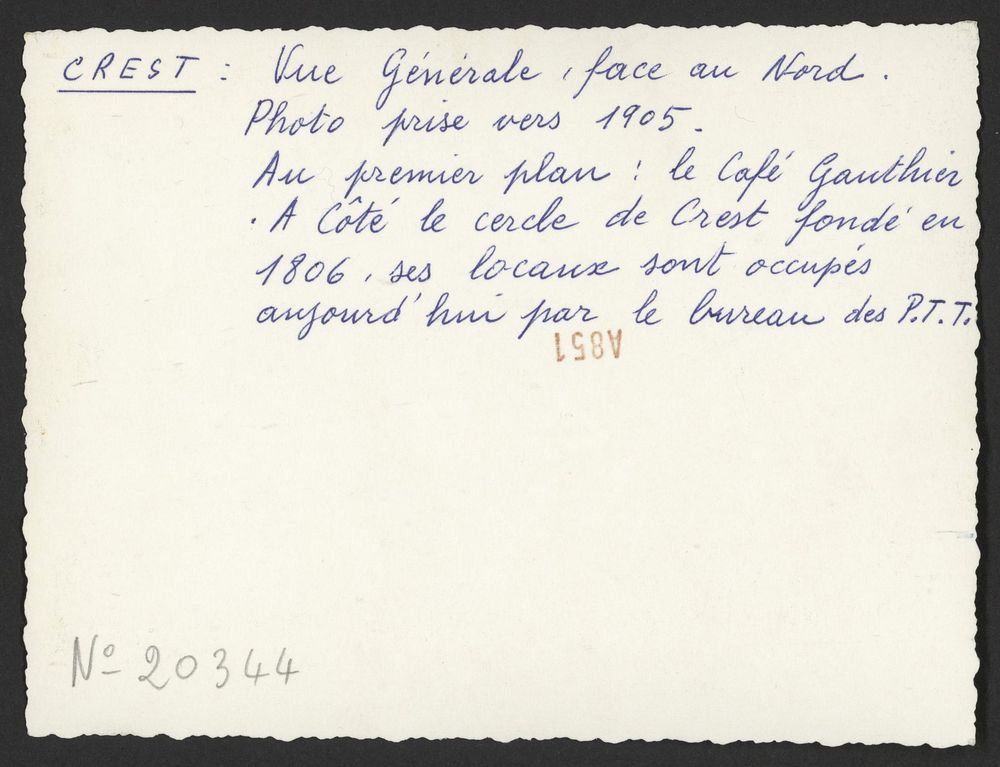 CREST : Vue Générale, face au Nord.
Photo prise vers 1905.
Au premier plan : le Café Gauthier
. A Côté le cercle de Crest fondé en
1806, ses locaux sont occupés
aujourd'hui par le bureau des P.T.T.
A851
Nº 20344